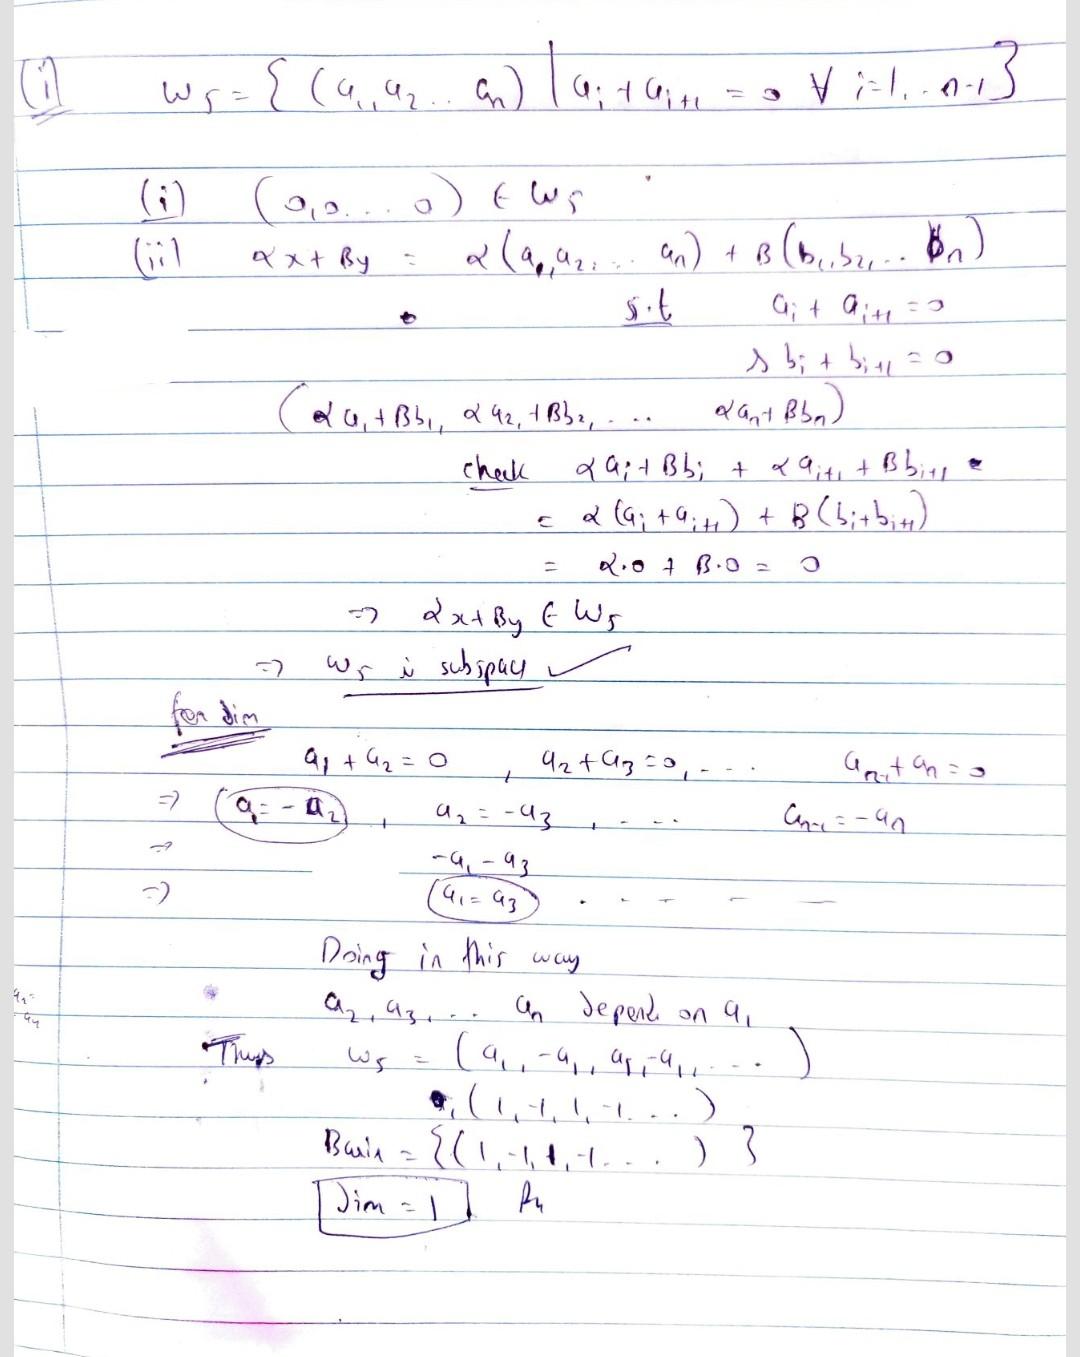 (i) W₅ = { (a₁, a₂ .. aₙ) | aᵢ + aᵢ₊₁ = 0 ∀ i=1, .. n-1 }
(i) (0,0. . . 0) ∈ W₅
(ii) αx + By = α (a₁, a₂, ... aₙ) + B (b₁, b₂, .. bₙ)
s.t aᵢ + aᵢ₊₁ = 0
& bᵢ + bᵢ₊₁ = 0
(αa₁ + Bb₁, αa₂ + Bb₂, . ... αaₙ + Bbₙ)
check αaᵢ + Bbᵢ + αaᵢ₊₁ + Bbᵢ₊₁
= α (aᵢ + aᵢ₊₁) + B (bᵢ + bᵢ₊₁)
= α.0 + B.0 = 0
=> αx + By ∈ W₅
=> W₅ is subspace ✓
for dim
a₁ + a₂ = 0 , a₂ + a₃ = 0, - ... aₙ₋₁ + aₙ = 0
=> a₁ = - a₂ , a₂ = -a₃ , - -.. aₙ₋₁ = -aₙ
=> -a₁ - a₃
=> a₁ = a₃ . - - - —
Doing in this way
a₂ =
a₄
a₂, a₃, .. aₙ depend on a₁
Thus W₅ = (a₁, -a₁, a₁, -a₁, . . . )
a₁ (1, -1, 1, -1. . . )
Basis = {(1, -1, 1, -1. . . . ) }
dim = 1